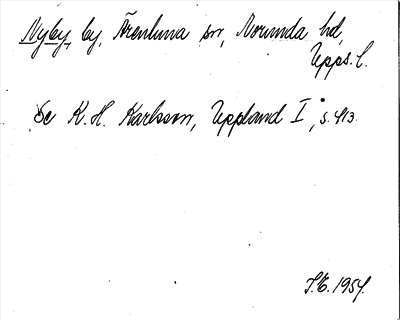 Nyby, by, Ärentuna sn, Norunda hd,
Upps. l.
Se K. H. Karlsson, Uppland I, s. 413.
S.E. 1954.